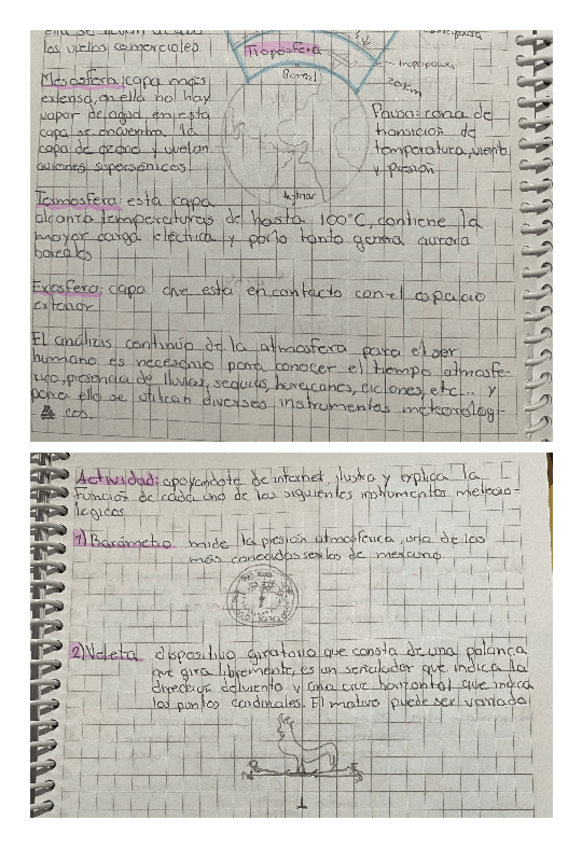 los vuelos comerciales.
Troposfera
tropopausa
20km
Boreal
Mesosfera: capa mas
extensa, en ella no hay
vapor de agua en esta
capa se encuentra la
capa de ozono y vuelan
aviones supersonicos
Pausa: zona de
transición de
temperatura, viento
y presión
Termosfera: esta capa
alcanza temperaturas de hasta 100°C, contiene la
mayor carga eléctrica y por lo tanto genera aurora
boreales
Exosfera: capa que esta en contacto con el espacio
exterior
El análisis continuo de la atmosfera para el ser
humano es necesario para conocer el tiempo atmosfe-
rico, presencia de lluvias, sequias, huracanes, ciclones, etc... y
para ello se utilizan diversos instrumentos meteorologi-
cos.
Actividad: apoyandote de internet, ilustra y explica la
función de cada uno de los siguientes instrumentos meteoro-
logicos
1) Barómetro mide la presión atmosferica, uno de los
más conocidos son los de mercurio.
2) Veleta dispositivo giratorio que consta de una palanca
que gira libremente, es un señalador que indica la
dirección del viento y una cruz horizontal que indica
los puntos cardinales. El motivo puede ser variado